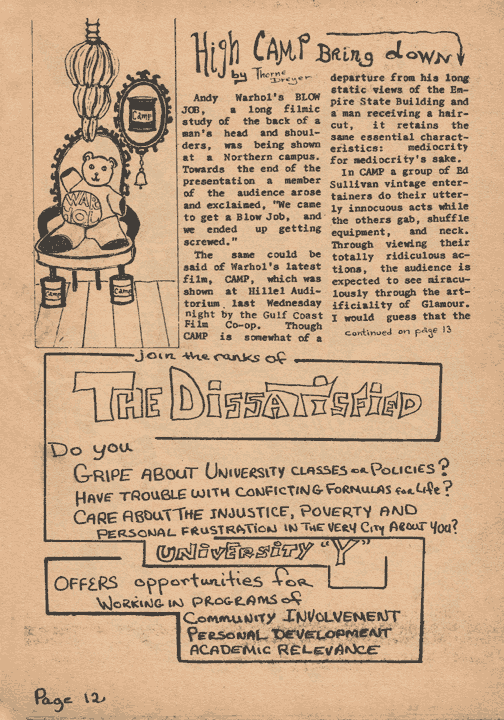 High CAMP Bring down
by Thorne Dreyer
Camp
WAR
HOL
Camp
Camp
Andy Warhol's BLOW
JOB, a long filmic
study of the back of a
man's head and shoul-
ders, was being shown
at a Northern campus.
Towards the end of the
presentation a member
of the audience arose
and exclaimed, "We came
to get a Blow Job, and
we ended up getting
screwed."
The same could be
said of Warhol's latest
film, CAMP, which was
shown at Hillel Audi-
torium last Wednesday
night by the Gulf Coast
Film Co-op. Though
CAMP is somewhat of a
departure from his long
static views of the Em-
pire State Building and
a man receiving a hair-
cut, it retains the
same essential charact-
eristics: mediocrity
for mediocrity's sake.
In CAMP a group of Ed
Sullivan vintage enter-
tainers do their utter-
ly innocuous acts while
the others gab, shuffle
equipment, and neck.
Through viewing their
totally ridiculous ac-
tions, the audience is
expected to see miracu-
lously through the art-
ificiality of Glamour.
I would guess that the
continued on page 13
join the ranks of
THE DISSATISFIED
Do you
GRIPE ABOUT UNIVERSITY CLASSES OR POLICIES?
HAVE TROUBLE WITH CONFICTING FORMULAS for Life?
CARE ABOUT THE INJUSTICE, POVERTY AND
PERSONAL FRUSTRATION IN THE VERY CITY ABOUT YOU?
UNIVERSITY "Y"
OFFERS opportunities for
WORKING IN PROGRAMS of
COMMUNITY INVOLVEMENT
PERSONAL DEVELOPMENT
ACADEMIC RELEVANCE
Page 12